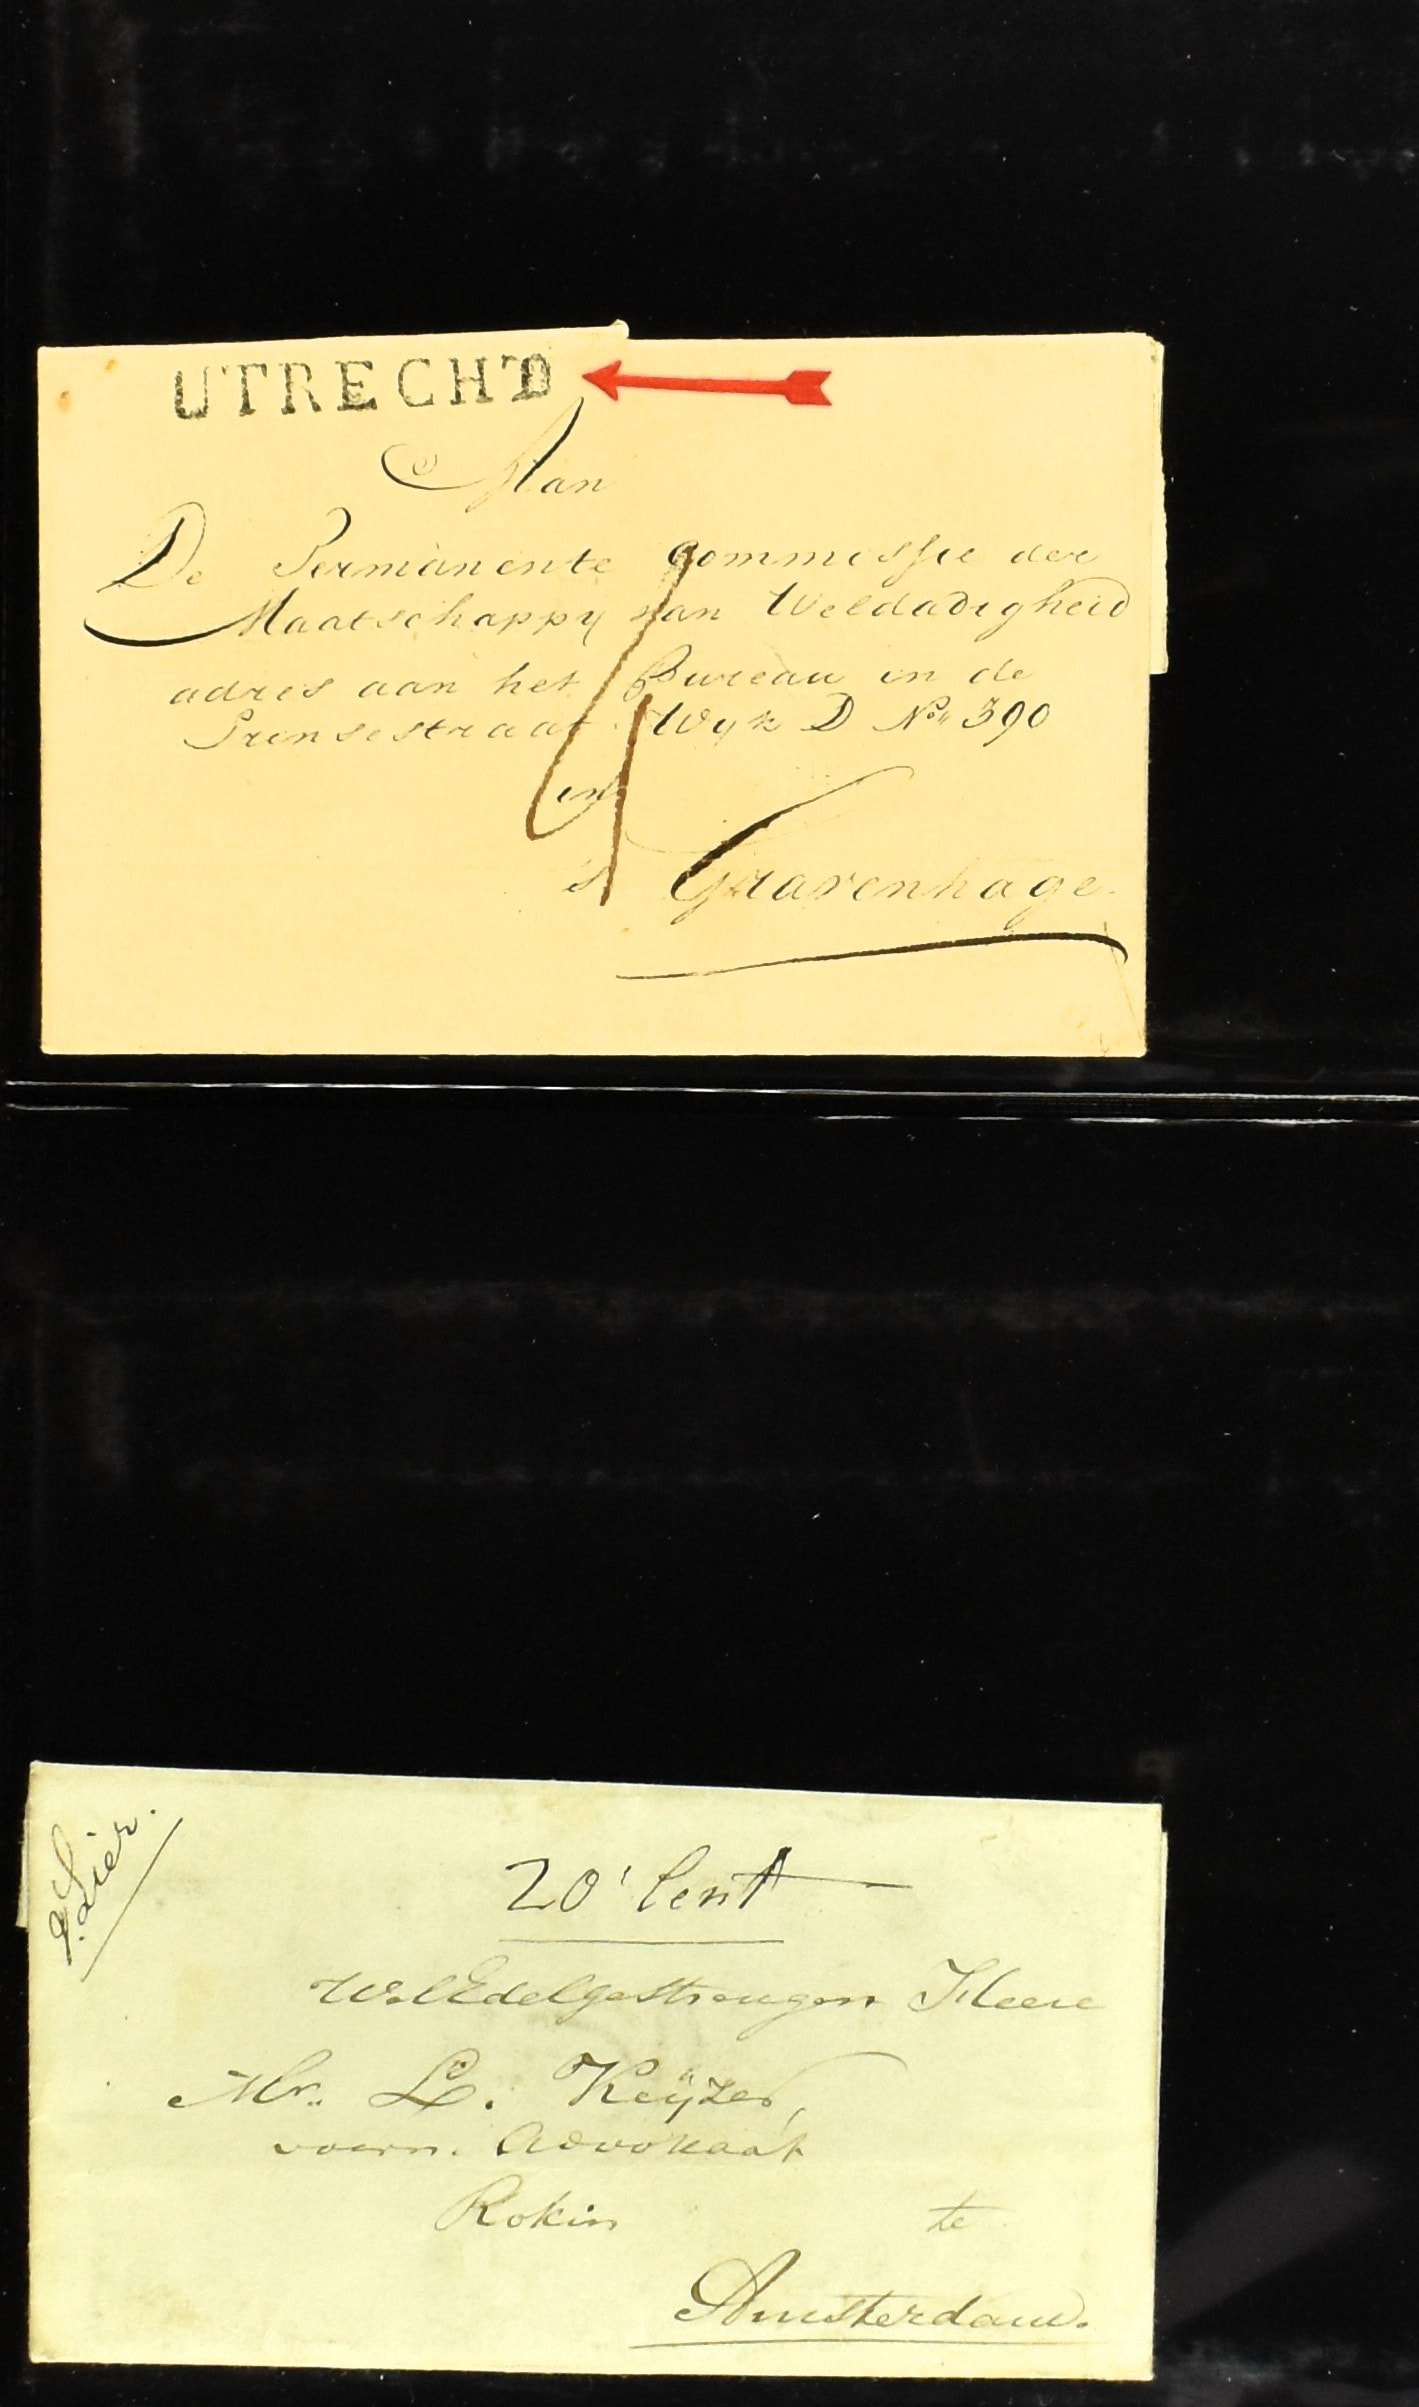 UTRECHT
Aan
De Permanente Commissie der
Maatschappy van Weldadigheid
adres aan het Bureau in de
Prinsestraat Wyk D No 390
in
's Gravenhage
Lier.
20 Cent
WelEdelGestrengen Heere
Mr. L. Keÿzer,
voorn. Advokaat
Rokin te
Amsterdam.